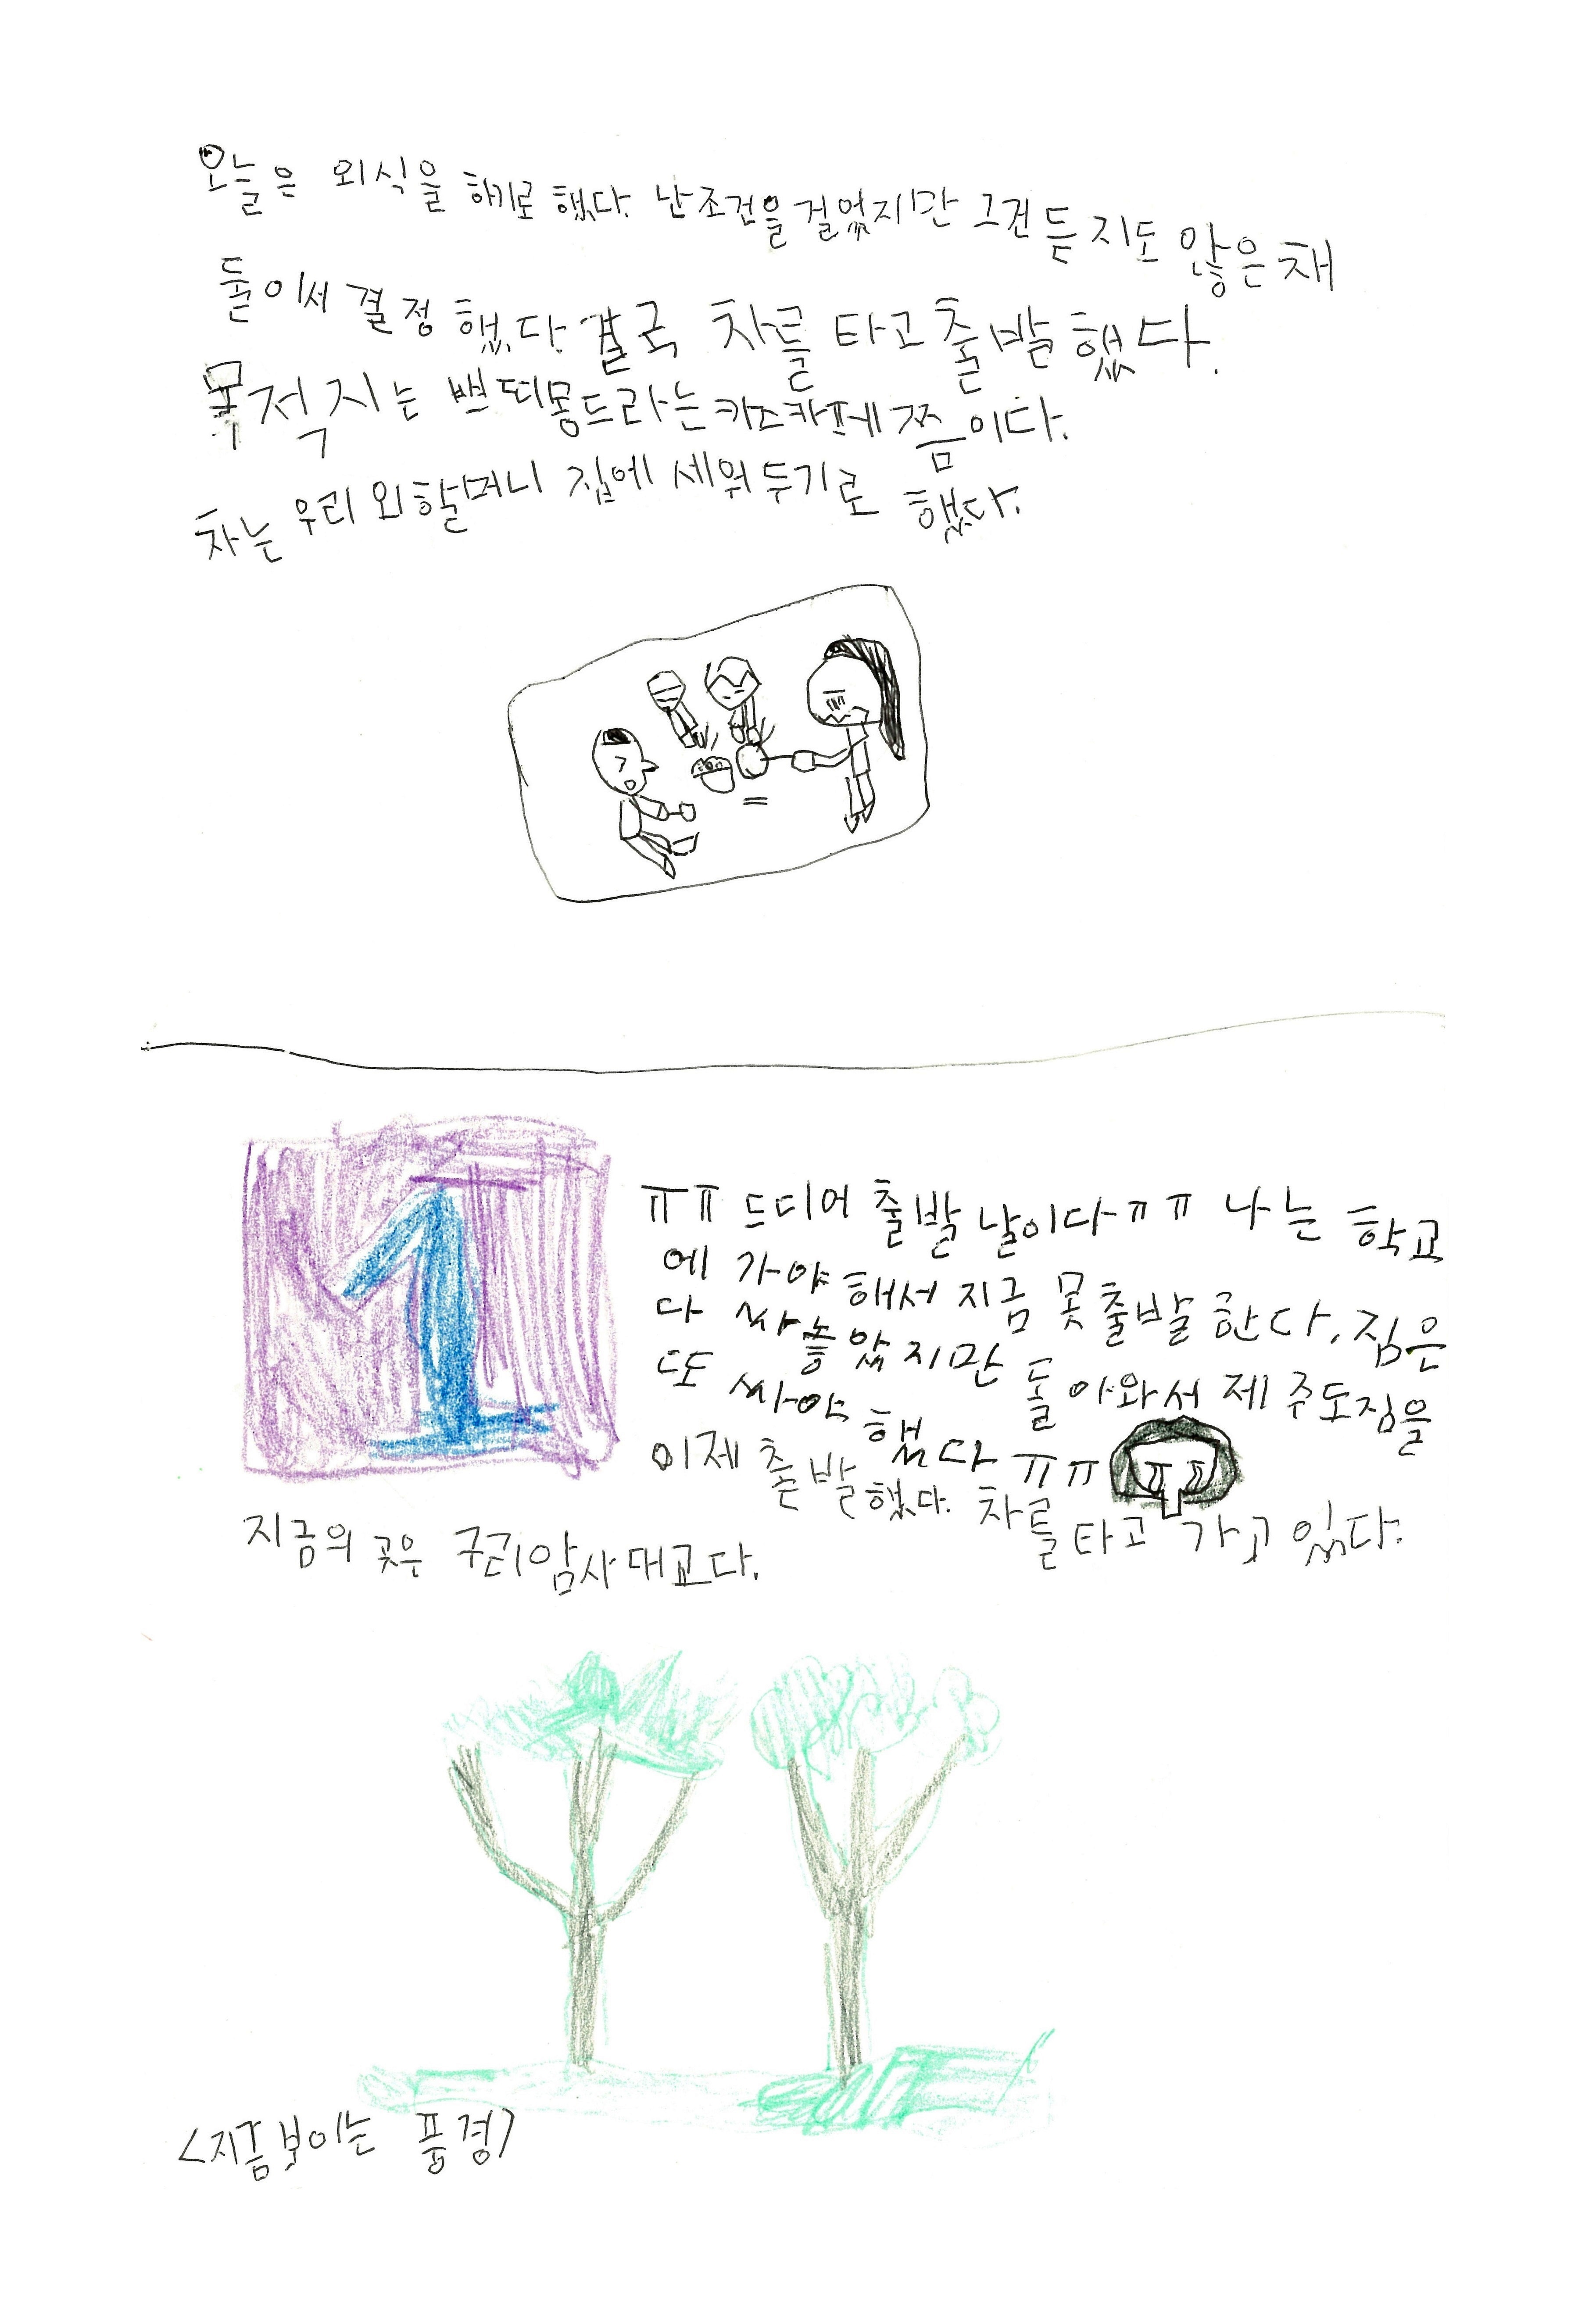 오늘은 외식을 하기로 했다. 난 조건을 걸었지만 그건 듣지도 않은 채
둘이서 결정했다. 결국 차를 타고 출발했다.
목적지는 쁘띠몽드라는 키즈카페쯤이다.
차는 우리 외할머니 집에 세워두기로 했다.
1
ㅠㅠ 드디어 출발 날이다ㅠㅠ 나는 학교
에 가야 해서 지금 못 출발한다. 짐은
다 싸 놓았지만 돌아와서 제주도짐을
또 싸야 했다 ㅠㅠ
이제 출발했다. 차를 타고 가고 있다.
지금의 곳은 구리암사대교다.
<지금 보이는 풍경>